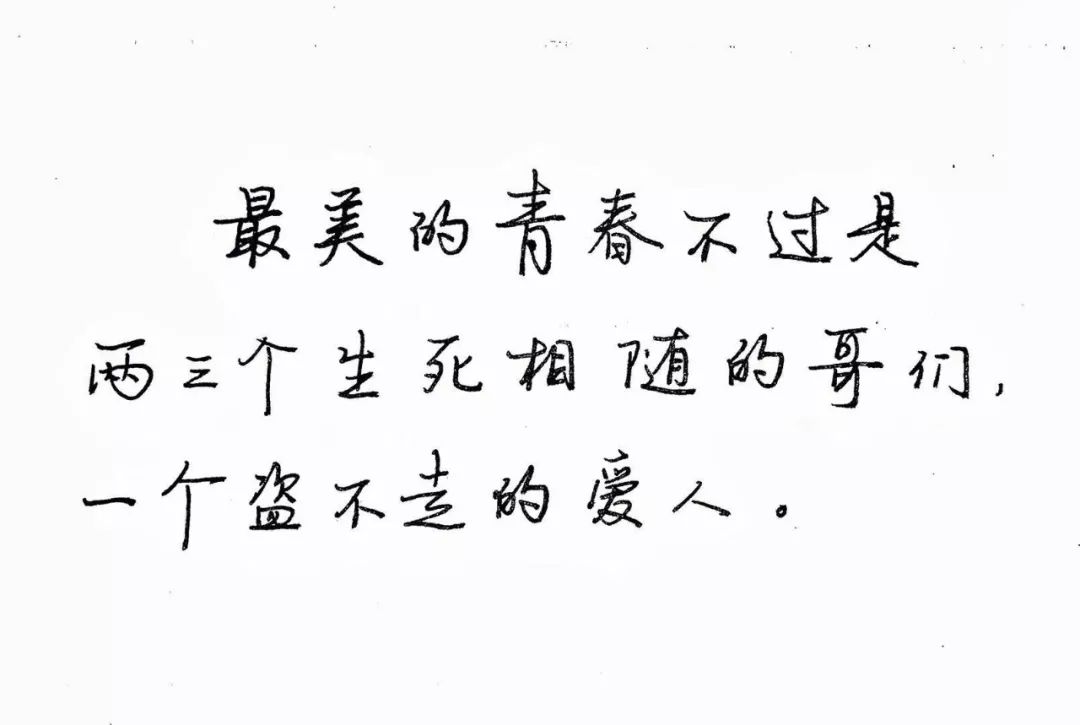 最美的青春不过是
两三个生死相随的哥们,
一个盗不走的爱人。